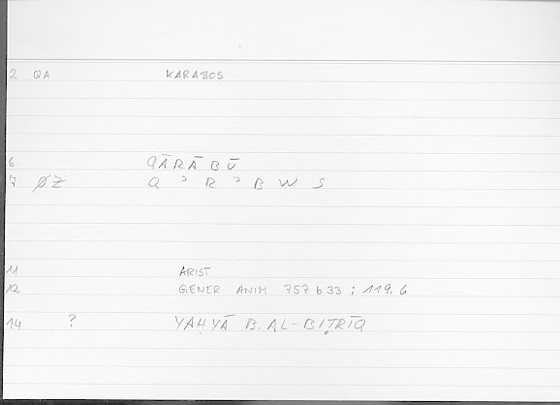 2 QA KARABOS
6 QĀRĀBŪ
7 ØZ Q ᵓ R ᵓ B W S
11 ARIST
12 GENER ANIM 757 b 33 ; 119.6
14 ? YAḤYĀ B. AL-BIṬRĪQ